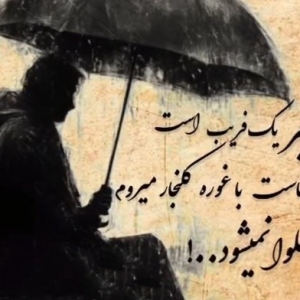 یک فریب است
با غوره کلنجار میروم
نمیشود..!